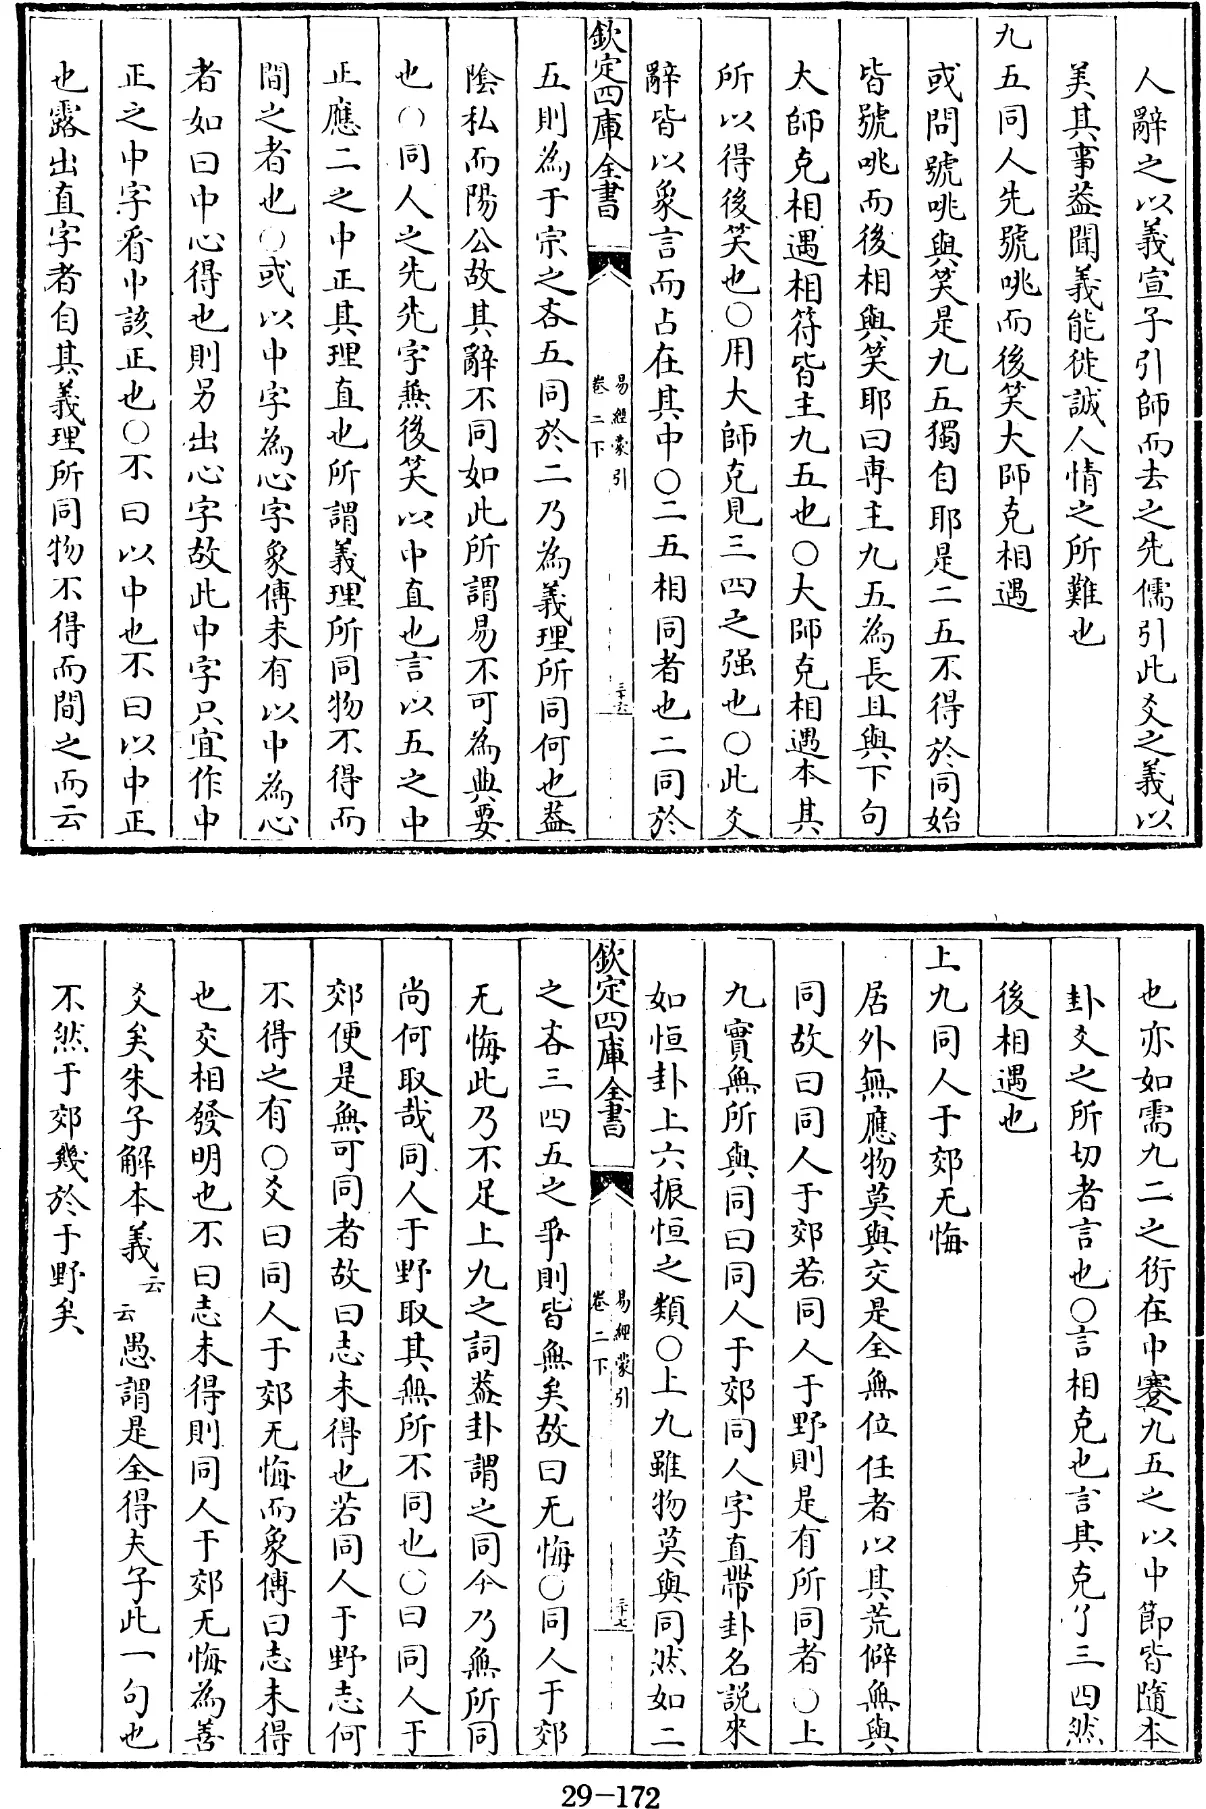 人辭之以義宣子引師而去之先儒引此爻之義以
美其事葢聞義能徙誠人情之所難也
九五同人先號咷而後笑大師克相遇
或問號咷與笑是九五獨自耶是二五不得於同始
皆號咷而後相與笑耶曰専主九五為長且與下句
大師克相遇相符皆主九五也○大師克相遇本其
所以得後笑也○用大師克見三四之强也○此爻
辭皆以象言而占在其中○二五相同者也二同於
欽定四庫全書
易經蒙引
卷二下
三十六
五則為于宗之吝五同於二乃為義理所同何也葢
隂私而陽公故其辭不同如此所謂易不可為典要
也○同人之先先字兼後笑以中直也言以五之中
正應二之中正其理直也所謂義理所同物不得而
間之者也○或以中字為心字象傳未有以中為心
者如曰中心得也則另出心字故此中字只宜作中
正之中字看中該正也○不曰以中也不曰以中正
也露出直字者自其義理所同物不得而間之而云
也亦如需九二之衍在中蹇九五之以中節皆隨本
卦爻之所切者言也○言相克也言其克了三四然
後相遇也
上九同人于郊无悔
居外無應物莫與交是全無位任者以其荒僻無與
同故曰同人于郊若同人于野則是有所同者○上
九實無所與同曰同人于郊同人字直帶卦名説來
如恒卦上六振恒之類○上九雖物莫與同然如二
欽定四庫全書
易經蒙引
卷二下
三十七
之吝三四五之爭則皆無矣故曰无悔○同人于郊
无悔此乃不足上九之詞葢卦謂之同今乃無所同
尚何取哉同人于野取其無所不同也○曰同人于
郊便是無可同者故曰志未得也若同人于野志何
不得之有○爻曰同人于郊无悔而象傳曰志未得
也交相發明也不曰志未得則同人于郊无悔為善
爻矣朱子解本義云云愚謂是全得夫子此一句也
不然于郊幾於于野矣
29-172